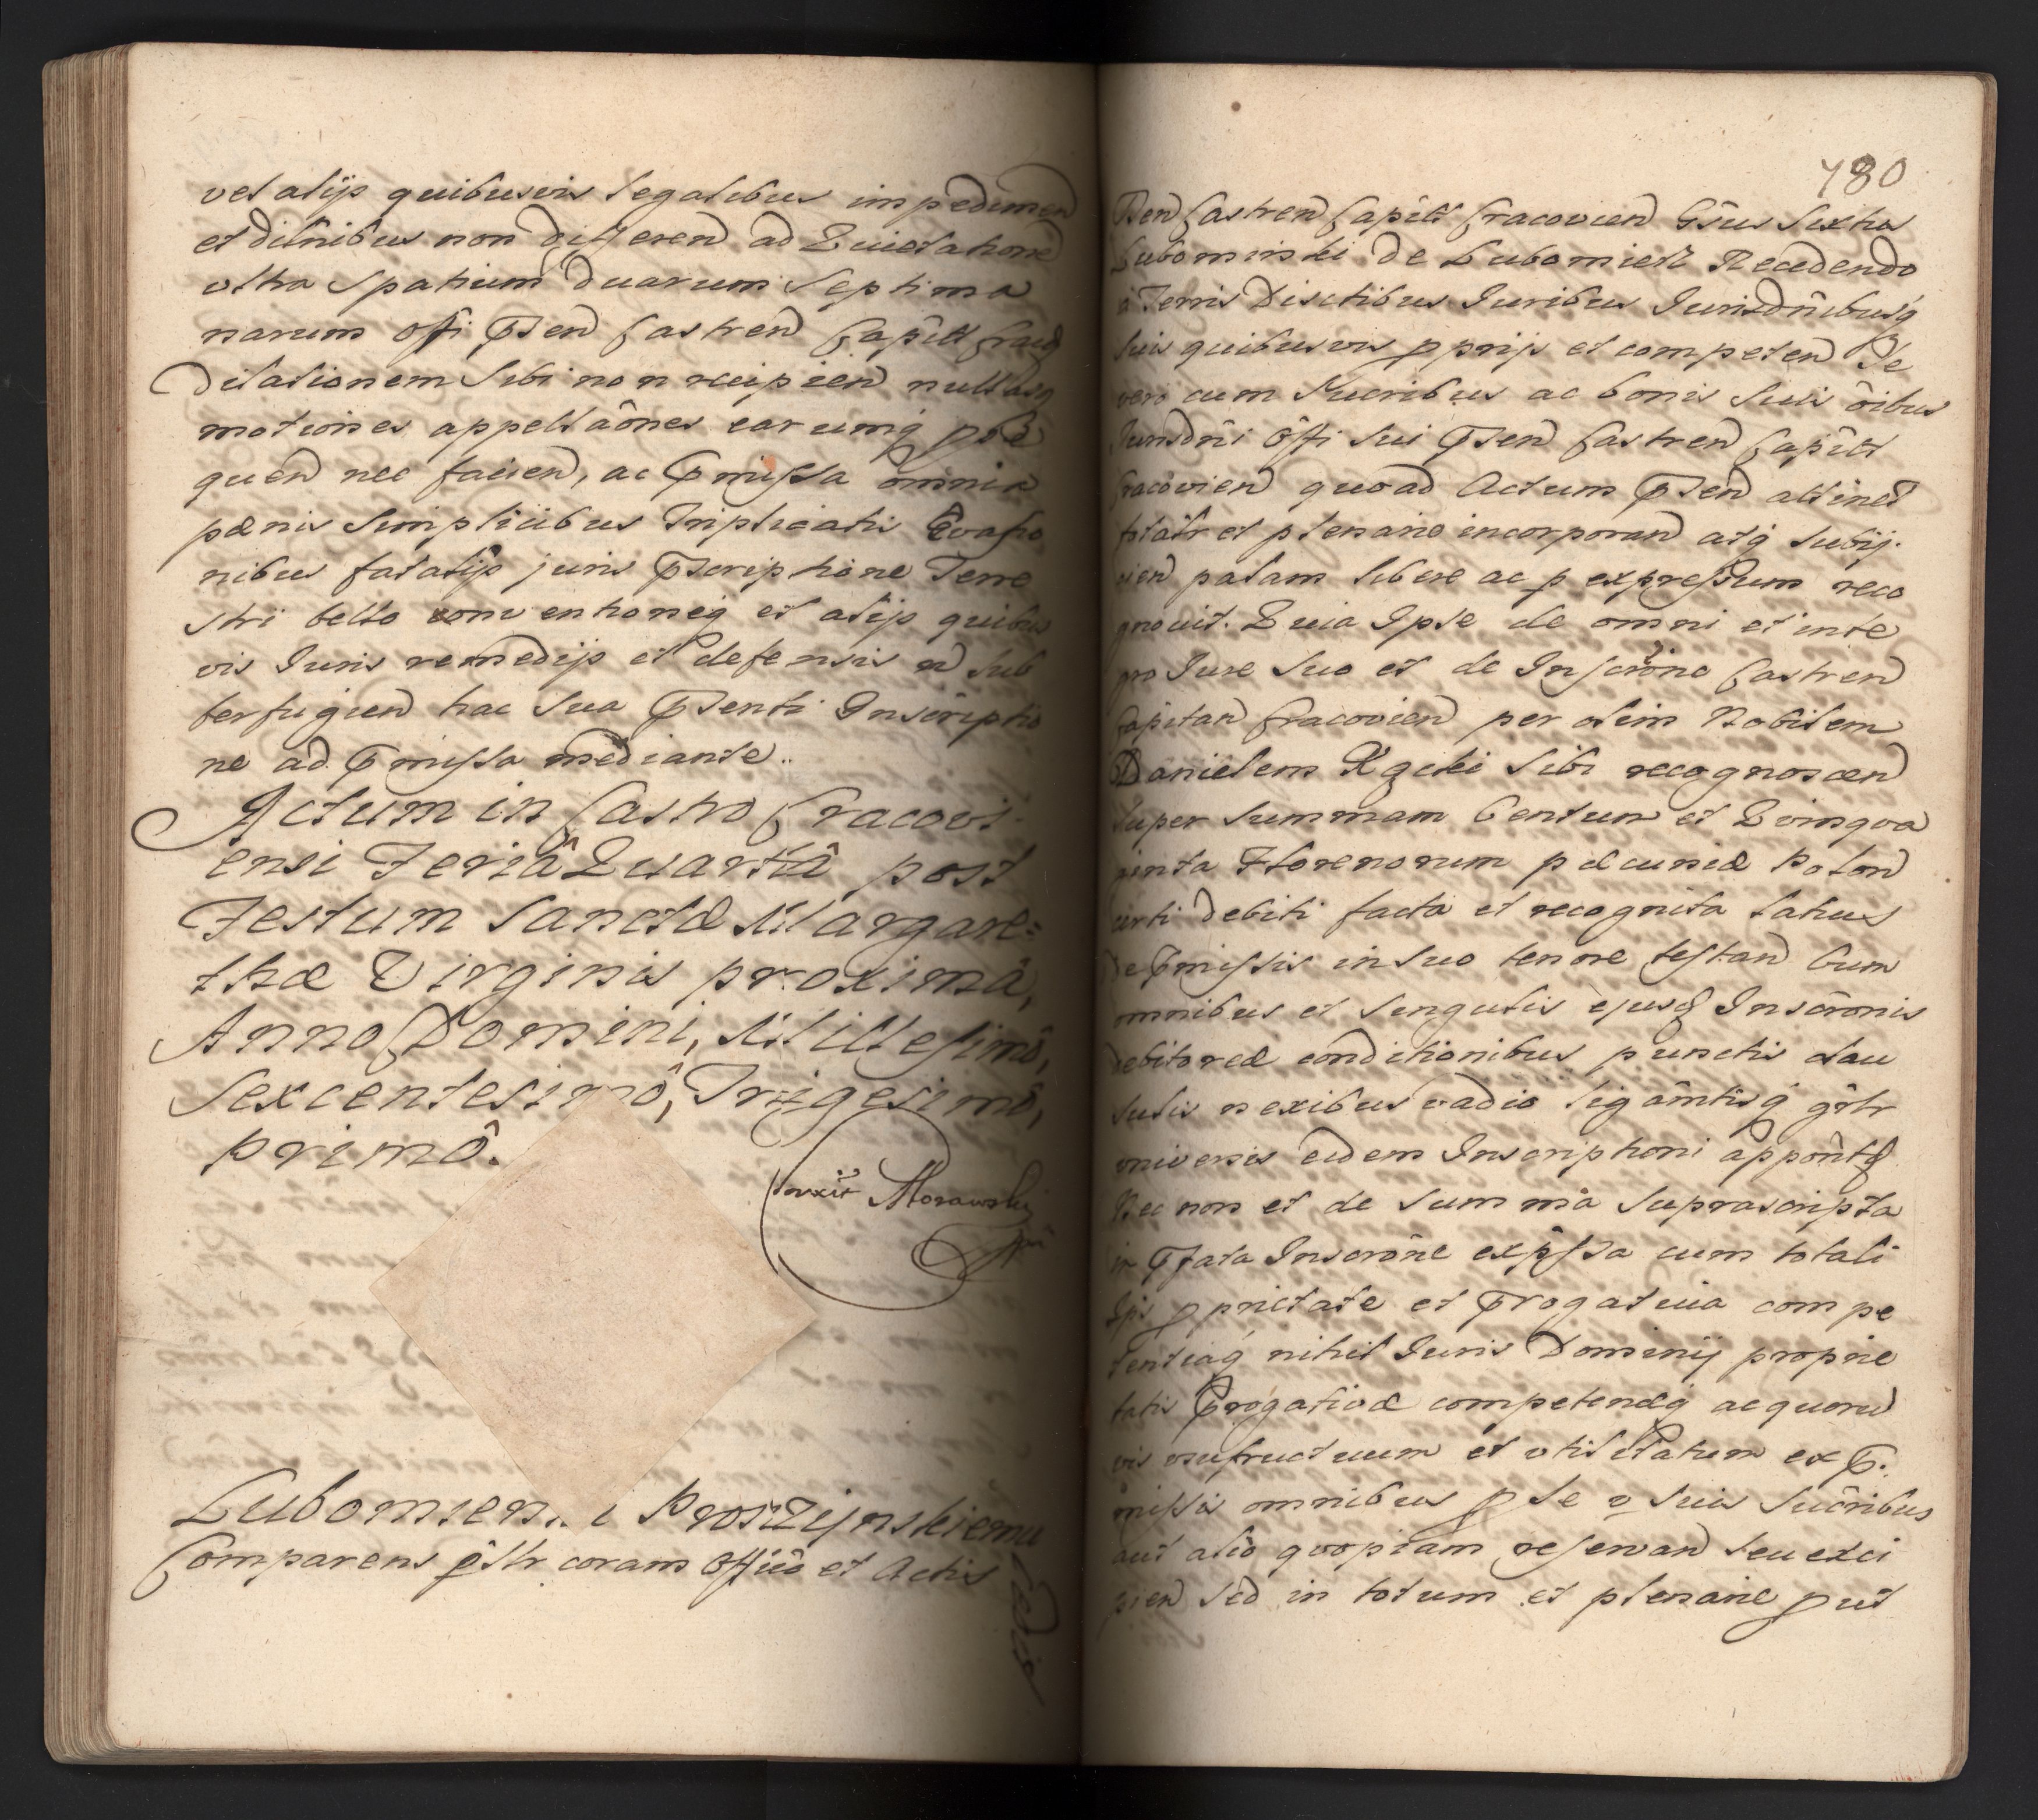 vel alijs quibusvis legalibus impedimen
et dilnibus non differen ad Quietatione
vltra spatium duarum septima
narum offi pñsen Castren Capitl Craco
dilationem sibi non recipien nullasq
motiones appellaônes earumq prose
quen nec facien, ac pmissa omnia
pœnis simplicibus triplicatis Evasio
nibus fatalijs juris pscriptione Terre
stri bello conventioneq et alijs quibus
vis Juris remedijs et defensis n sub
terfugien hac sua psenti Inscriptio
ne ad pmissa mediante.
Actum in Castro Cracovi
ensi Feriâ Quartâ post
Festum Sanctæ Margare=
thæ Virginis proximâ,
Anno Domini, Millesimô,
Sexcentesimô, Trigesimô,
primô.
Morawski
Lubomien Proszynskiemu
Comparens psltr coram Officô et Actis
Cedit
780
Psen Castren Capitl Cracovien Gñsus Sixtus
Lubominski de Lubomierz Recedendo
à Terris Disctibus Juribus Jurisdnibusq
suis quibusvis pprijs et competen Se
vero cum Sucribus ac bonis suis oîbus
Jurisdni Offi sui psen Castren Capitl
Cracovien quoad Actum psen attinet
totalr et plenarie incorporan atq subij.
cien palam libere ac p expressum reco
gnouit. Quia Ipse de omni et inte
gro Jure suo et de Inscrône Castren
Capitan Cracovien per olim Nobilem
Danielem sibi recognoscen
super summam Centum et Quinqua
ginta Florenorum pæcuniæ Polon
certi debiti facta et recognita latius
de pmissis in suo tenore testan Cum
omnibus et singulis ejusd Inscrônis
debitoreæ conditionibus punctis clau
sulis nexibus vadio ligâmtisq gñlr
vniversis eidem Inscriptioni appôntd
Nec non et de summa suprascripta
in pfata Inscrône expssa cum totali
Ips pprietate et progatiua compe
tentiaq nihil Juris Dominij proprie
tatis progatiuæ competenæq ac quoru
vis vsufructuum et vtilitatum ex p.
missis omnibus p se v suis sucribus
aut aliô quopiam reservan seu exci
pien sed in totum et plenarie put